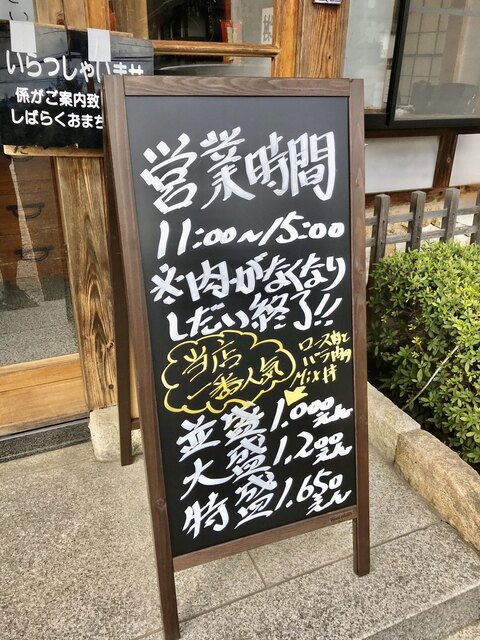 いらっしゃいませ
係がご案内致
しばらくおまち
営業時間
11:00〜15:00
※肉がなくなり
しだい終了!!
当店
一番人気
ロース肉と
バラ肉の
Mix丼
並盛 1.000えん
大盛 1.200えん
特盛 1.650えん